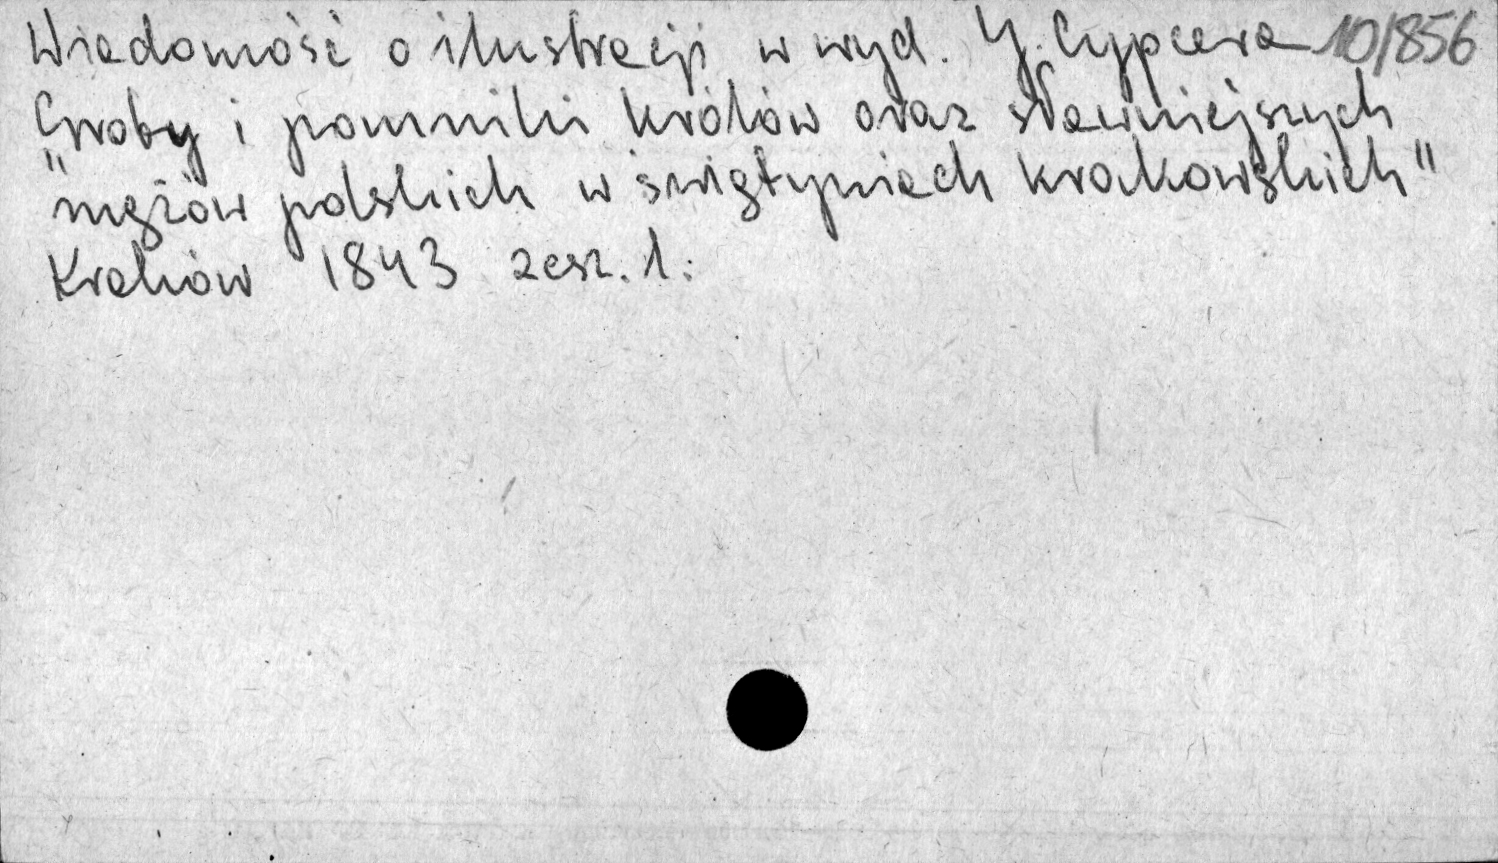 Wiadomość o ilustracji w wyd. J. Cypcera 10/856
"Groby i pomniki królów oraz sławniejszych
mężów polskich w świątyniach krakowskich"
Kraków 1843 zesz. 1.